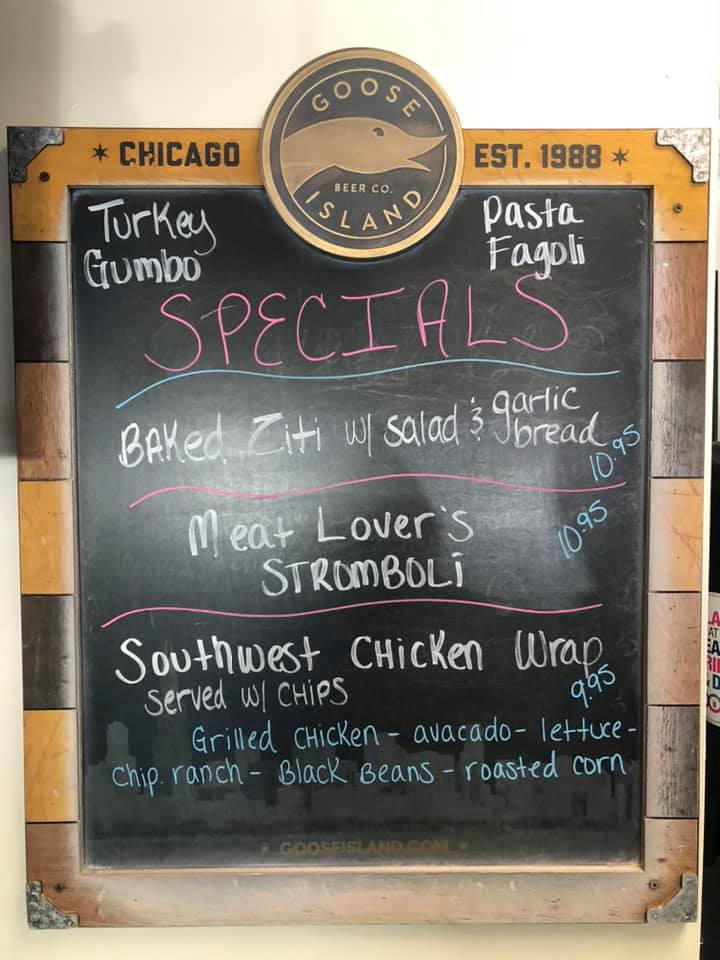 GOOSE
BEER CO.
ISLAND
* CHICAGO
EST. 1988 *
Turkey
Gumbo
Pasta
Fagoli
SPECIALS
BAKed Ziti w/ salad & garlic
bread
10.95
Meat Lover's
STROMBOLi
10.95
Southwest CHicKen Wrap
Served w/ CHiPS
9.95
Grilled CHicKen - avacado - lettuce -
Chip. ranch - BlacK Beans - roasted corn
* GOOSEISLAND.COM *